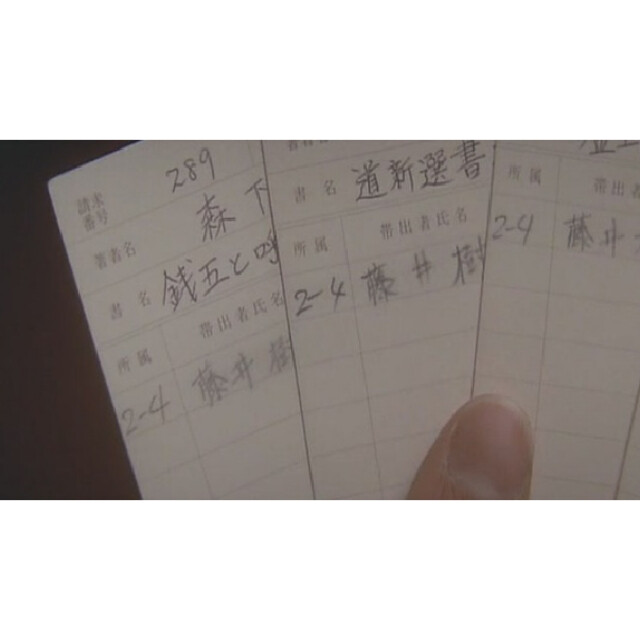 請求番号 289
著者名 森下
書名 銭五と呼
所属 帯出者氏名
2-4 藤井樹
書名 道新選書
所属 帯出者氏名
2-4 藤井樹
所属 帯出者
2-4 藤井